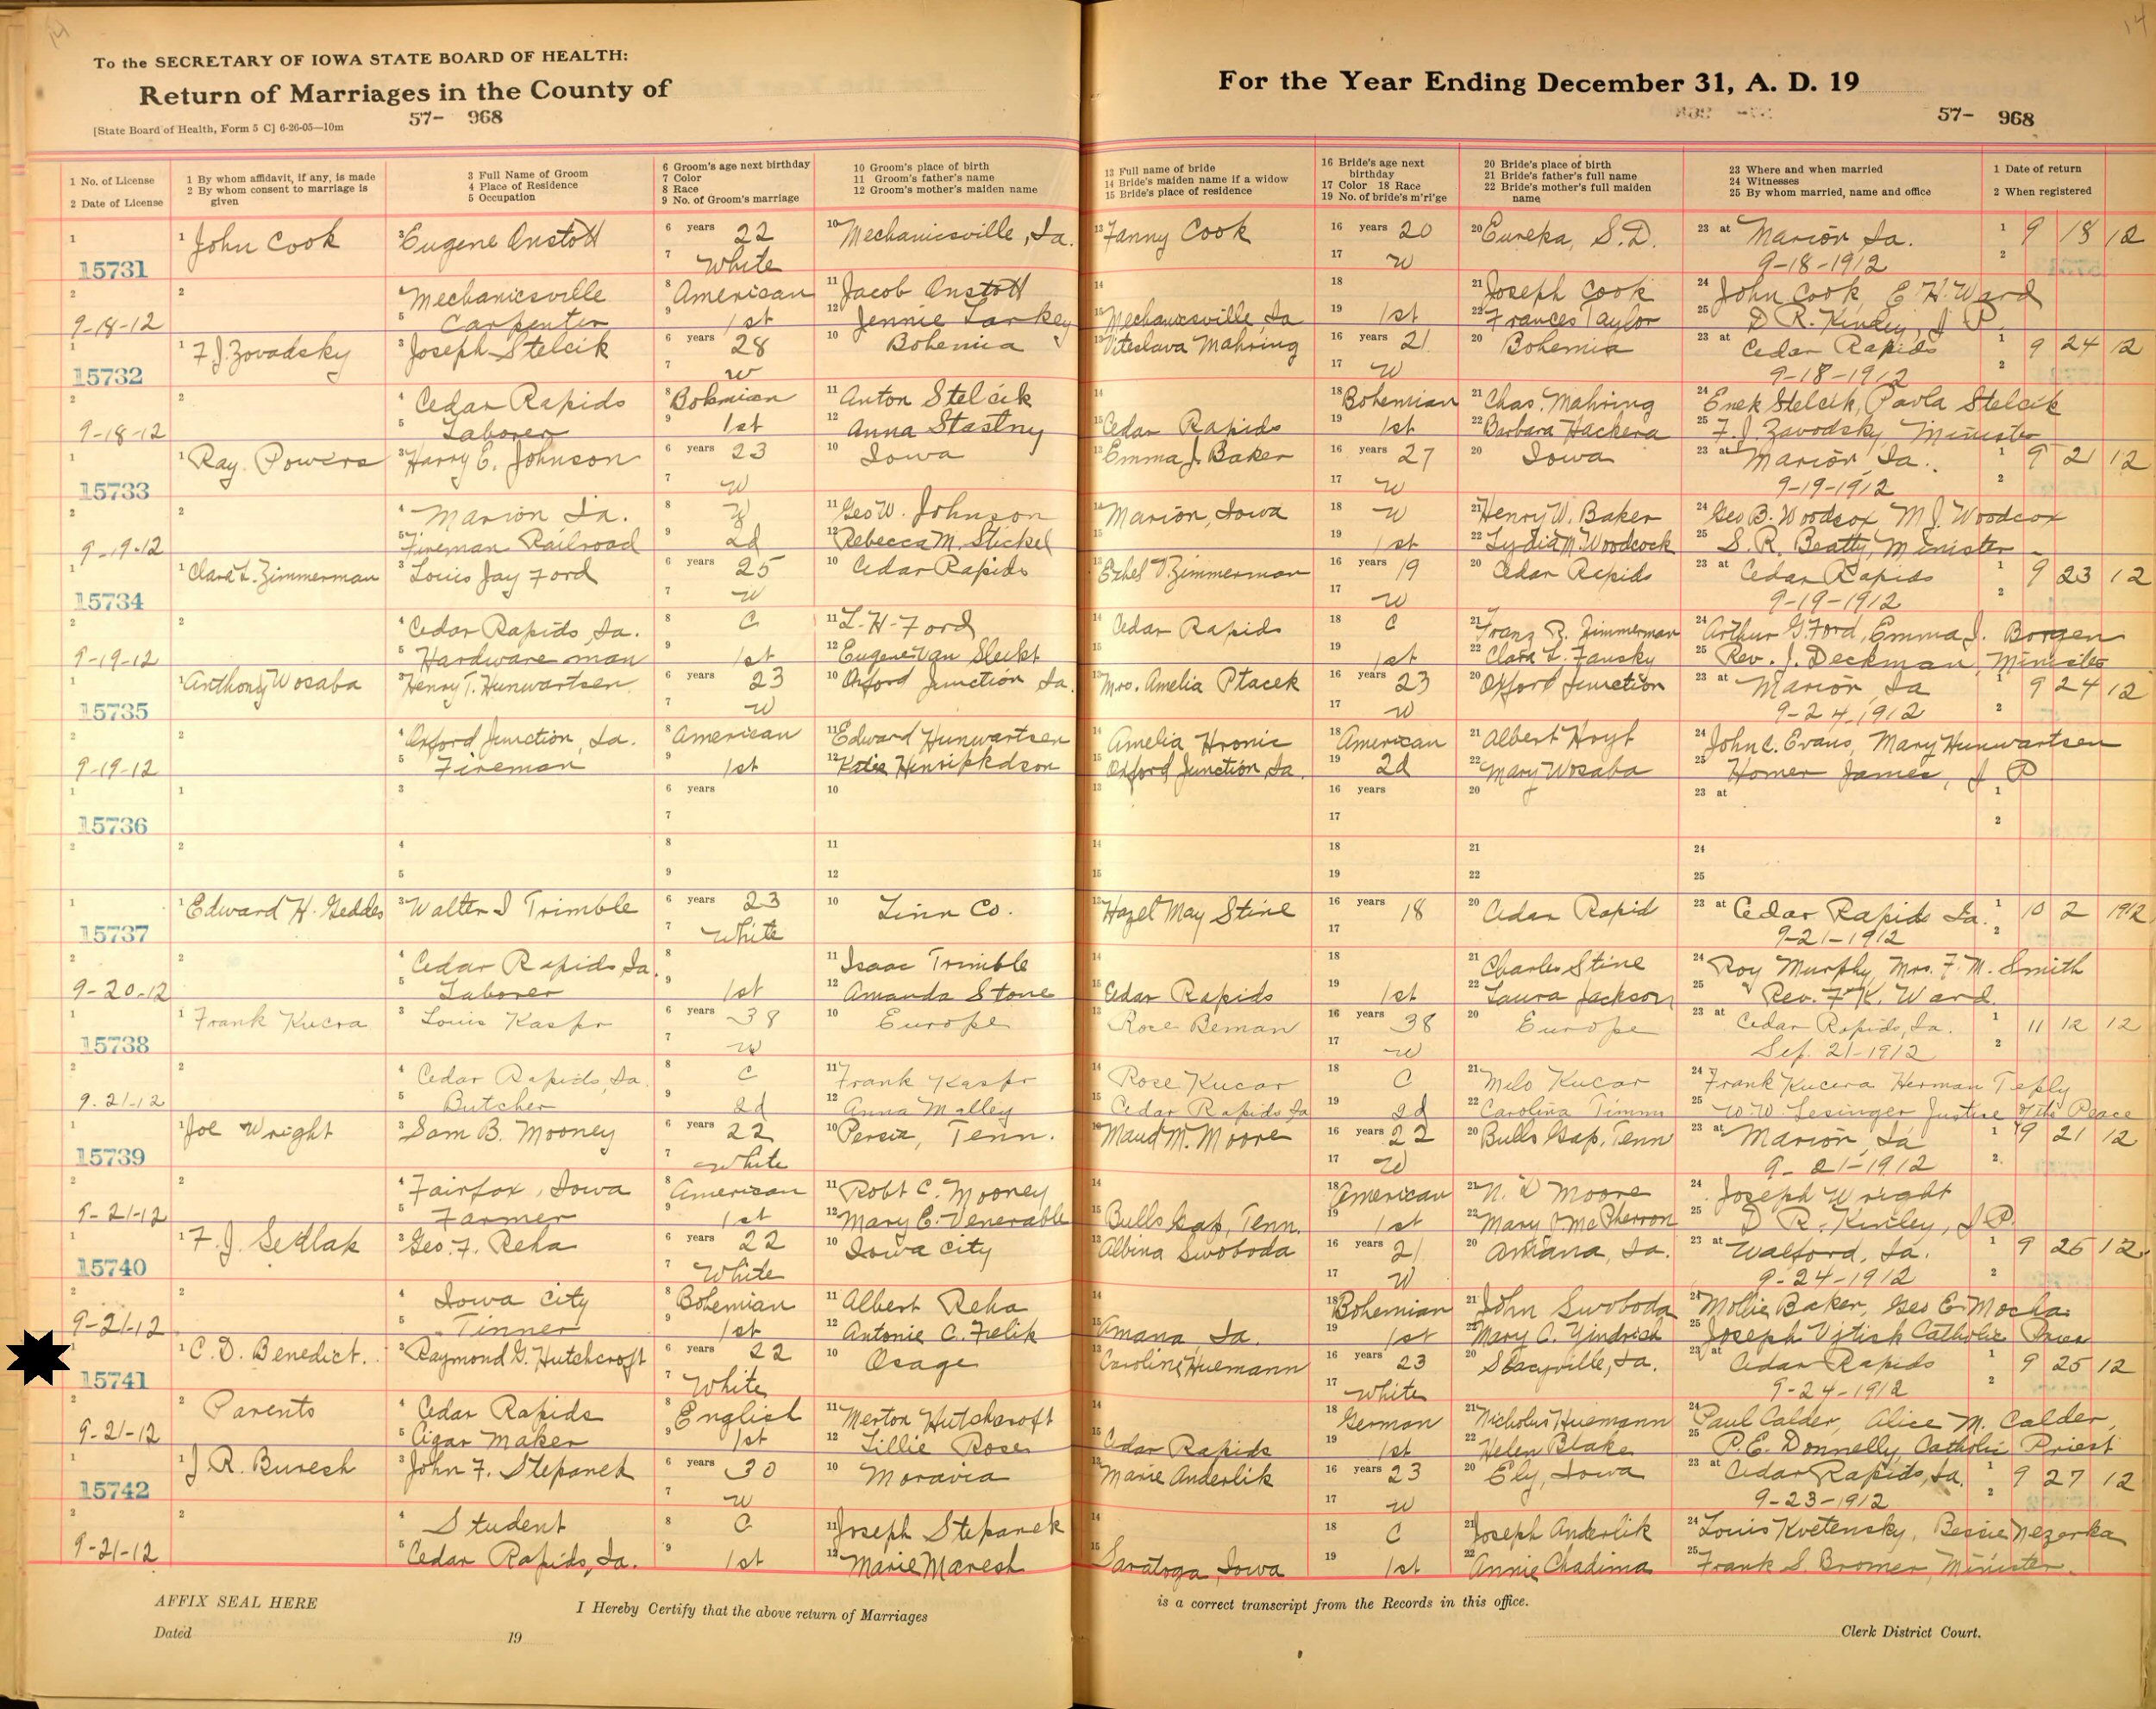 14
14
To the SECRETARY OF IOWA STATE BOARD OF HEALTH:
Return of Marriages in the County of
57- 968
[State Board of Health, Form 5 C] 6-26-05—10m
For the Year Ending December 31, A. D. 19
57- 968
1 No. of License
2 Date of License
1 By whom affidavit, if any, is made
2 By whom consent to marriage is given
3 Full Name of Groom
4 Place of Residence
5 Occupation
6 Groom's age next birthday
7 Color
8 Race
9 No. of Groom's marriage
10 Groom's place of birth
11 Groom's father's name
12 Groom's mother's maiden name
13 Full name of bride
14 Bride's maiden name if a widow
15 Bride's place of residence
16 Bride's age next birthday
17 Color 18 Race
19 No. of bride's m'ri'ge
20 Bride's place of birth
21 Bride's father's full name
22 Bride's mother's full maiden name
23 Where and when married
24 Witnesses
25 By whom married, name and office
1 Date of return
2 When registered
1 1 John Cook 3 Eugene Anstott 6 years 22 10 Mechanicsville, Ia. 13 Fanny Cook 16 years 20 20 Eureka, S.D. 23 at Marion Ia. 1 9 18 12
15731 7 White 17 W 9-18-1912 2
2 2 4 Mechanicsville 8 American 11 Jacob Anstott 14 18 21 Joseph Cook 24 John Cook, E. H. Ward
9-18-12 5 Carpenter 9 1st 12 Jennie 15 Mechanicsville, Ia 19 1st 22 Frances Taylor 25 D R. Kinley, J P.
1 1 F. J. Zovadsky 3 Joseph Stelcik 6 years 28 10 Bohemia 13 Viteslava Mahring 16 years 21 20 Bohemia 23 at Cedar Rapids 1 9 24 12
15732 7 W 17 W 9-18-1912 2
2 2 4 Cedar Rapids 8 Bohmian 11 Anton Stelcik 14 18 Bohemian 21 Chas. Mahring 24 Enek Stelcik, Pavla Stelcik
9-18-12 5 Laborer 9 1st 12 Anna Stastny 15 Cedar Rapids 19 1st 22 Barbara Hackera 25 F. J. Zavodsky, Minister
1 1 Ray. Powers 3 Harry E. Johnson 6 years 23 10 Iowa 13 Emma J. Baker 16 years 27 20 Iowa 23 at Marion, Ia. 1 9 21 12
15733 7 W 17 W 9-19-1912 2
2 2 4 Marion Ia. 8 W 11 Geo W. Johnson 14 Marion, Iowa 18 W 21 Henry W. Baker 24 Geo B. Woodcox, M J. Woodcox
9-19-12 5 Fireman Railroad 9 2d 12 Rebecca M. Stickel 15 19 1st 22 Lydia M. Woodcock 25 S. R. Beatty, Minister
1 1 Clara L. Zimmerman 3 Louis Jay Ford 6 years 25 10 Cedar Rapids 13 Ethel V. Zimmerman 16 years 19 20 Cedar Rapids 23 at Cedar Rapids 1 9 23 12
15734 7 W 17 W 9-19-1912 2
2 2 4 Cedar Rapids, Ia. 8 C 11 L. H. Ford 14 Cedar Rapids 18 C 21 Franz R. Zimmerman 24 Arthur G. Ford, Emma J. Borgen
9-19-12 5 Hardware man 9 1st 12 Eugene Van Sleckt 15 19 1st 22 Clara L. Fansky 25 Rev. J. Deckman, Minister
1 1 Anthony Wosaba 3 Henry T. Hunwartsen 6 years 23 10 Oxford Junction Ia. 13 Mrs. Amelia Ptacek 16 years 23 20 Oxford Junction 23 at Marion, Ia 1 9 24 12
15735 7 W 17 W 9-24-1912 2
2 2 4 Oxford Junction, Ia. 8 American 11 Edward Hunwartsen 14 Amelia Hronic 18 American 21 Albert Hoyt 24 John C. Evans, Mary Hunwartsen
9-19-12 5 Fireman 9 1st 12 Katie 15 Oxford Junction, Ia. 19 2d 22 Mary Wosaba 25 Homer James, J P
1 1 3 6 years 10 13 16 years 20 23 at 1
15736 7 17 2
2 2 4 8 11 14 18 21 24
5 9 12 15 19 22 25
1 1 Edward H. Geddes 3 Walter I Trimble 6 years 23 10 Linn Co. 13 Hazel May Stine 16 years 18 20 Cedar Rapid 23 at Cedar Rapids Ia. 1 10 2 1912
15737 7 White 17 9-21-1912 2
2 2 4 Cedar Rapids Ia. 8 11 Isaac Trimble 14 18 21 Charles Stine 24 Roy Murphy, Mrs. F. M. Smith
9-20-12 5 Laborer 9 1st 12 Amanda Stone 15 Cedar Rapids 19 1st 22 Laura Jackson 25 Rev. F. K. Ward.
1 1 Frank Kucra 3 Louis Kaspr 6 years 38 10 Europe 13 Rose Beman 16 years 38 20 Europe 23 at Cedar Rapids, Ia. 1 11 12 12
15738 7 W 17 W Sep. 21-1912 2
2 2 4 Cedar Rapids, Ia. 8 C 11 Frank Kaspr 14 Rose Kucar 18 C 21 Milo Kucar 24 Frank Kucera Herman Teply
9.21-12 5 Butcher 9 2d 12 Anna Malley 15 Cedar Rapids Ia 19 2d 22 Carolina Timmi 25 W. W. Lesinger Justice of the Peace
1 1 Joe Wright 3 Sam B. Mooney 6 years 22 10 Persia, Tenn. 13 Maud M. Moore 16 years 22 20 Bulls Gap, Tenn 23 at Marion, Ia 1 9 21 12
15739 7 White 17 W 9-21-1912 2
2 2 4 Fairfax, Iowa 8 American 11 Robt C. Mooney 14 18 American 21 N. D Moore 24 Joseph Wright
9-21-12 5 Farmer 9 1st 12 Mary E. Venerable 15 Bulls Gap, Tenn. 19 1st 22 Mary McPherron 25 D R. Kinley, J P.
1 1 F. J. Sedlak 3 Geo. F. Reha 6 years 22 10 Iowa City 13 Albina Swoboda 16 years 21 20 Amana, Ia. 23 at Walford, Ia. 1 9 26 12
15740 7 White 17 W 9-24-1912 2
2 2 4 Iowa City 8 Bohemian 11 Albert Reha 14 18 Bohemian 21 John Swoboda 24 Mollie Baker, Geo E. Mocha
9-21-12 5 Tinner 9 1st 12 Antonie C. Frelik 15 Amana, Ia. 19 1st 22 Mary C. Yindrich 25 Joseph Vjtish Catholic
1 1 C. D. Benedict. 3 Raymond G. Hutchcroft 6 years 22 10 Osage 13 Caroline Huemann 16 years 23 20 Stacyville, Ia. 23 at Cedar Rapids 1 9 25 12
15741 7 White 17 White 9-24-1912 2
2 2 Parents 4 Cedar Rapids 8 English 11 Merton Hutchcroft 14 18 German 21 Nicholus Huemann 24 Paul Calder, Alice M. Calder,
9-21-12 5 Cigar Maker 9 1st 12 Lillie Rose 15 Cedar Rapids 19 1st 22 Helen Blake 25 P. E. Donnelly, Catholic Priest
1 1 J. R. Buresh 3 John F. Stepanek 6 years 30 10 Moravia 13 Marie Anderlik 16 years 23 20 Ely, Iowa 23 at Cedar Rapids, Ia. 1 9 27 12
15742 7 W 17 W 9-23-1912 2
2 2 4 Student 8 C 11 Joseph Stepanek 14 18 C 21 Joseph Anderlik 24 Louis Kvetensky, Bessie Nezerka
9-21-12 5 Cedar Rapids, Ia. 9 1st 12 Marie Maresh 15 Saratoga, Iowa 19 1st 22 Annie Chadima 25 Frank S. Bromer, Minister.
AFFIX SEAL HERE
I Hereby Certify that the above return of Marriages
is a correct transcript from the Records in this office.
Dated 19
Clerk District Court.